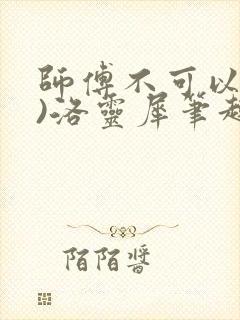 師傅不可以
)洛靈犀筆趣
陌陌醬